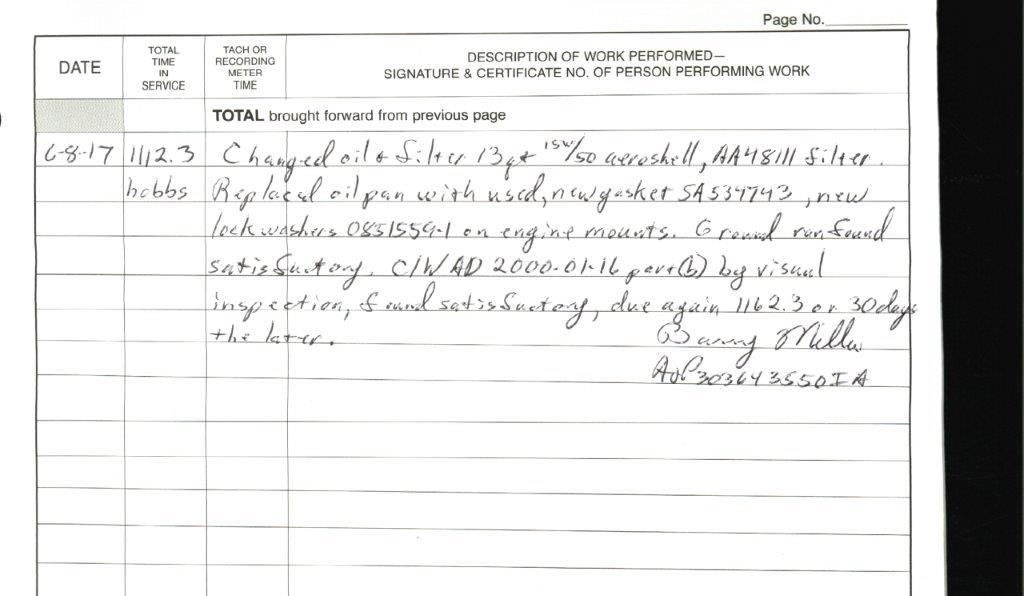 Page No.
DATE
TOTAL
TIME
IN
SERVICE
TACH OR
RECORDING
METER
TIME
DESCRIPTION OF WORK PERFORMED—
SIGNATURE & CERTIFICATE NO. OF PERSON PERFORMING WORK
TOTAL brought forward from previous page
6-8-17 1112.3 Changed oil & filter 13qt 15W/50 aeroshell, AA48111 filter.
hobbs Replaced oil pan with used, new gasket SA534743, new
lock washers 0851559-1 on engine mounts. Ground run found
satisfactory. C/W AD 2000-01-16 part(b) by visual
inspection, found satisfactory, due again 1162.3 or 30 days
the later. Barry Miller
A&P 303643550IA